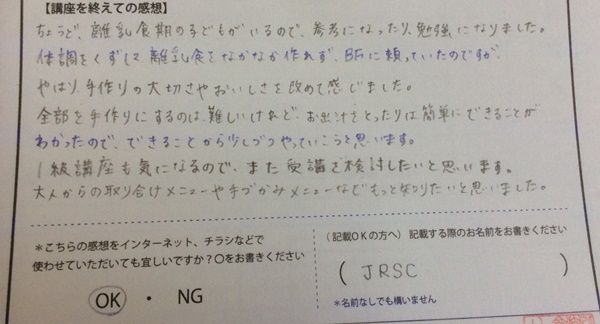 【講座を終えての感想】
ちょうど、離乳食期の子どもがいるので、参考になったり、勉強になりました。
体調をくずして離乳食をなかなか作れず、BFに頼っていたのですが、
やはり手作りの大切さやおいしさを改めて感じました。
全部を手作りにするのは難しいけれど、お出汁をとったりは簡単にできることが
わかったので、できることから少しづつやっていこうと思います。
1級講座も気になるので、また受講を検討したいと思います。
大人からの取り分けメニューや手づかみメニューなどもっと知りたいと思いました。
*こちらの感想をインターネット、チラシなどで
使わせていただいても宜しいですか?〇をお書きください
OK ・ NG
(記載OKの方へ) 記載する際のお名前をお書きください
( JRSC )
*名前なしでも構いません